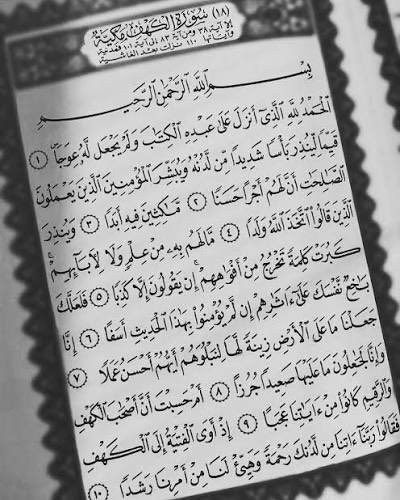 (١٨) سُورَةُ الْكَهْفِ مَكِّيَّة
إلا آية ٣٨ ومن آية ٨٣ إلى آية ١٠١ فمدنية
وآياتها ١١٠ نزلت بعد الغاشية
بِسْمِ اللَّهِ الرَّحْمَٰنِ الرَّحِيمِ
الْحَمْدُ لِلَّهِ الَّذِي أَنْزَلَ عَلَىٰ عَبْدِهِ الْكِتَٰبَ وَلَمْ يَجْعَل لَّهُ عِوَجَا ١
قَيِّمًا لِّيُنذِرَ بَأْسًا شَدِيدًا مِّن لَّدُنْهُ وَيُبَشِّرَ الْمُؤْمِنِينَ الَّذِينَ يَعْمَلُونَ
الصَّٰلِحَٰتِ أَنَّ لَهُمْ أَجْرًا حَسَنًا ٢ مَّٰكِثِينَ فِيهِ أَبَدًا ٣ وَيُنذِرَ
الَّذِينَ قَالُوا اتَّخَذَ اللَّهُ وَلَدًا ٤ مَّا لَهُم بِهِۦ مِنْ عِلْمٍ وَلَا لِءَابَآئِهِمْ ۚ
كَبُرَتْ كَلِمَةً تَخْرُجُ مِنْ أَفْوَٰهِهِمْ ۚ إِن يَقُولُونَ إِلَّا كَذِبًا ٥ فَلَعَلَّكَ
بَٰخِعٌ نَّفْسَكَ عَلَىٰٓ ءَاثَٰرِهِمْ إِن لَّمْ يُؤْمِنُوا بِهَٰذَا الْحَدِيثِ أَسَفًا ٦ إِنَّا
جَعَلْنَا مَا عَلَى الْأَرْضِ زِينَةً لَّهَا لِنَبْلُوَهُمْ أَيُّهُمْ أَحْسَنُ عَمَلًا ٧
وَإِنَّا لَجَٰعِلُونَ مَا عَلَيْهَا صَعِيدًا جُرُزًا ٨ أَمْ حَسِبْتَ أَنَّ أَصْحَٰبَ الْكَهْفِ
وَالرَّقِيمِ كَانُوا مِنْ ءَايَٰتِنَا عَجَبًا ٩ إِذْ أَوَى الْفِتْيَةُ إِلَى الْكَهْفِ
فَقَالُوا رَبَّنَآ ءَاتِنَا مِن لَّدُنكَ رَحْمَةً وَهَيِّئْ لَنَا مِنْ أَمْرِنَا رَشَدًا ١٠